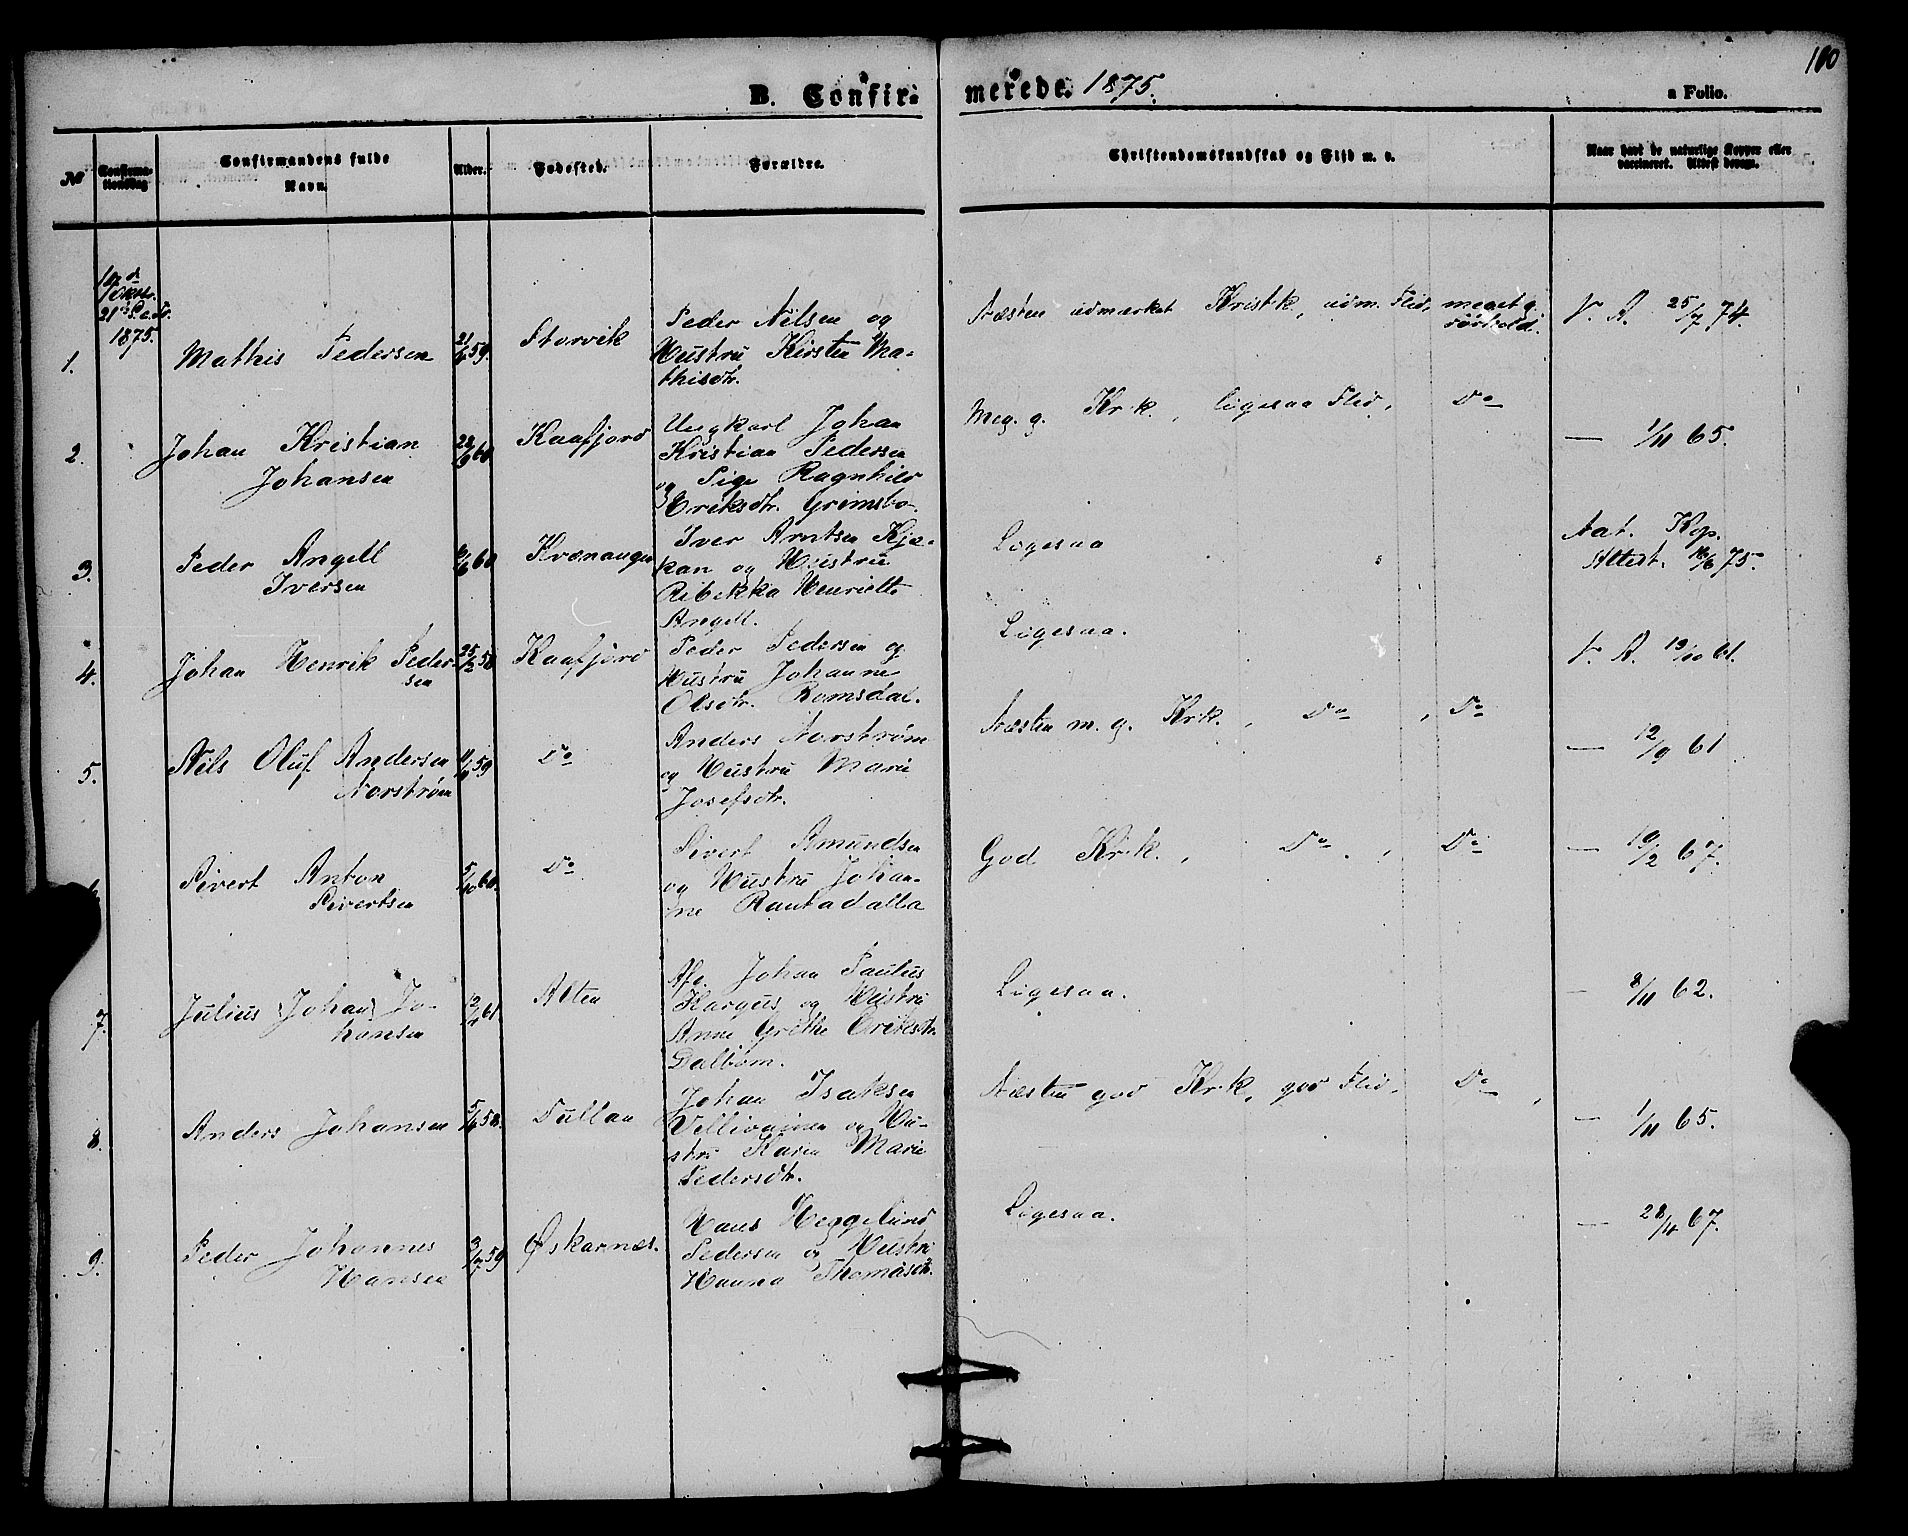 100
B. Confirmerede. 1875.
a Folio.
№
Confirmationsdag
Confirmandens fulde Navn.
Alder.
Fødested.
Forældre.
Christendomskundskab og Flid m. v.
Naar havt de naturlige Kopper eller vaccineret. Attest derom.
Oktbr.
1875.
1.
Mathis Pedersen
59.
Storvik
Peder Nilsen og
Hustru Kirsten Ma-
thisdtr.
Næsten udmærket Krist.k, udm. Flid, meget g.
Forhold.
V. A. 25/7 74.
2.
Johan Kristian
Johansen
28/9 60
Kaafjord
Ungkarl Johan
Kristian Pedersen
og Pige Ragnhild
Eriksdtr. Grimsbo.
Meg. g. Kr.k., ligesaa Flid, Do
— 1/11 65.
3.
Peder Angell
Iversen
60
Kvænangen
Iver Arntsen Kjæ-
kan og Hustru
Rebekka Henriette
Angell.
Ligesaa
Nat. Kop.
Attest. /6 75.
4.
Johan Henrik Peder-
sen
25/2 58
Kaafjord
Peder Pedersen og
Hustru Johanne
Olsdtr. Romsdal.
Ligesaa.
V. A. 19/10 61.
5.
Nils Oluf Andersen
Norstrøm
59
Do
Anders Norstrøm
og Hustru Marie
Josefsdtr.
Næsten m. g. Kr.k., Do, Do
— 12/9 61
6
Sivert Anton
Sivertsen
5/10 60.
Do
Sivert Amundsen
og Hustru Johan-
ne Rautadalla
God Kr.k., Do, Do
— 19/2 67.
7.
Julius (Johan) Jo-
hansen
61.
Alten
Afd. Johan Paulus
Kargus og Hustru
Anne Grethe Eriksdtr.
Dalbom.
Ligesaa.
— 8/11 62.
8.
Anders Johansen
58.
Tullan
Johan Isaksen
Vellivainen og Hu-
stru Karen Marie
Pedersdtr.
Næsten god Kr.k, god Flid, Do,
— 1/11 65.
9.
Peder Johannes
Hansen
3/7 59
Øskarnes.
Hans Heggelund
Pedersen og Hustru
Hanna Thomasdtr.
Ligesaa.
— 28/4 67.